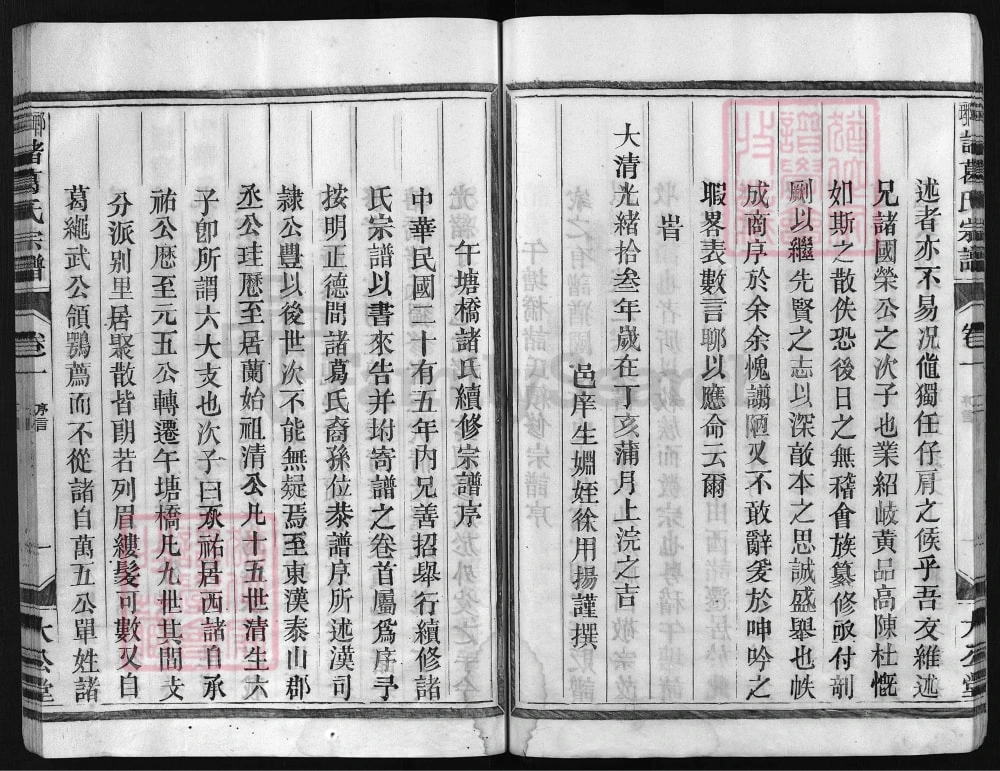 述者亦不易况僅獨任仔肩之候乎吾友維述
兄諸國榮公之次子也業紹岐黃品高陳杜慨
如斯之散佚恐後日之無稽會族纂修亟付剞
劂以繼先賢之志以深敵本之思誠盛舉也帙
成商序於余余愧謭陋又不敢辭爰於呻吟之
暇畧表數言聊以應命云爾
旹
大清光緒拾叁年歲在丁亥蒲月上浣之吉
邑庠生姻姪徐用揚謹撰
午塘橋諸氏續修宗譜序
中華民國二十有五年內兄善招舉行續修諸
氏宗譜以書來告并坿寄譜之卷首屬爲序予
按明正德間諸葛氏裔孫位恭譜序所述漢司
隸公豐以後世次不能無疑焉至東漢泰山郡
丞公珪歷至居蘭始祖清公凡十五世清生六
子卽所謂六大支也次子曰承祐居西諸自承
祐公歷至元五公轉遷午塘橋凡九世其間支
分派别里居聚散皆朙若列眉縷髮可數又自
葛繩武公領鶚薦而不從諸自萬五公單姓諸
諸葛氏宗譜
卷一
序言
一